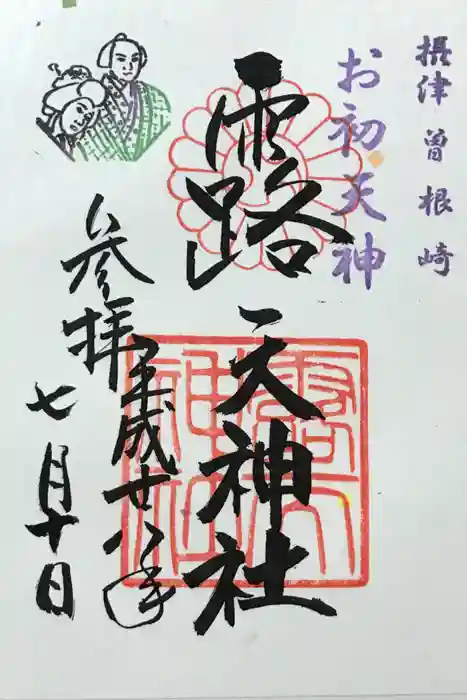 摂津 曽根崎
お初天神
露天神社
参拝
平成廿八年
七月十日